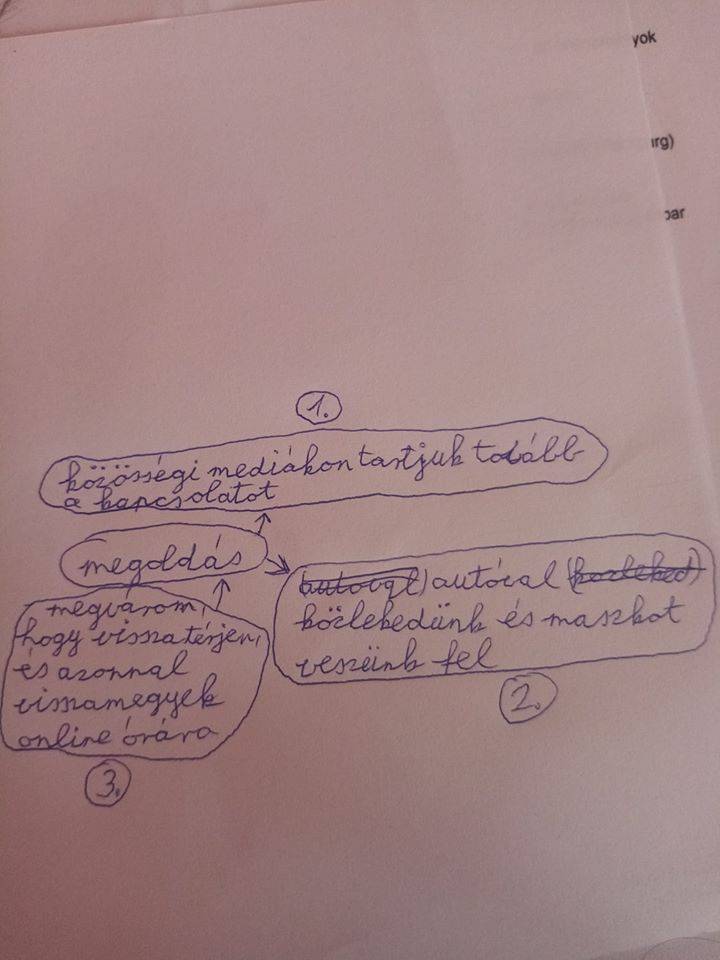 yok
urg)
bar
1.
közösségi mediákon tartjuk tovább
a kapcsolatot
megoldás
autóval (közleked)
közlekedünk és maszkot
veszünk fel
2.
megvárom,
hogy visszatérjen,
és azonnal
visszamegyek
online órára
3.